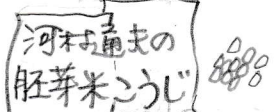 河村通夫の
胚芽米こうじ